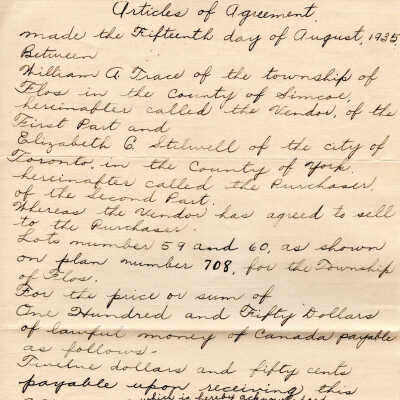 Articles of Agreement.
made the Fifteenth day of August, 1935,
Between
William A Trace of the township of
Flos in the County of Simcoe,
hereinafter called the Vendor, of the
First Part and
Elizabeth E. Stilwell of the city of
Toronto, in the County of York.
hereinafter called the Purchaser,
of the Second Part.
Whereas the Vendor has agreed to sell
to the Purchaser.
Lots number 59 and 60, as shown
on plan number 708, for the Township
of Flos.
For the price or sum of
One Hundred and Fifty Dollars
of lawful money of Canada payable
as follows.-
Twelve dollars and fifty cents
payable upon receiving this
which is hereby